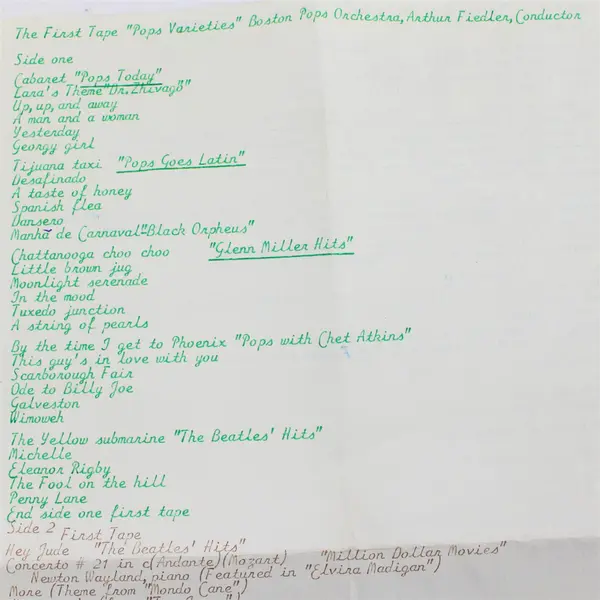 The First Tape "Pops Varieties" Boston Pops Orchestra, Arthur Fiedler, Conductor
Side one
Cabaret "Pops Today"
Lara's Theme "Dr. Zhivago"
Up, up, and away
A man and a woman
Yesterday
Georgy girl
Tijuana taxi "Pops Goes Latin"
Desafinado
A taste of honey
Spanish flea
Dansero
Manhã de Carnaval "Black Orpheus"
Chattanooga choo choo "Glenn Miller Hits"
Little brown jug
Moonlight serenade
In the mood
Tuxedo junction
A string of pearls
By the time I get to Phoenix "Pops with Chet Atkins"
This guy's in love with you
Scarborough Fair
Ode to Billy Joe
Galveston
Wimoweh
The Yellow submarine "The Beatles' Hits"
Michelle
Eleanor Rigby
The Fool on the hill
Penny Lane
End side one first tape
Side 2 First Tape
Hey Jude "The Beatles' Hits"
Concerto # 21 in c (Andante) (Mozart) "Million Dollar Movies"
Newton Wayland, piano (Featured in "Elvira Madigan")
More (Theme from "Mondo Cane")